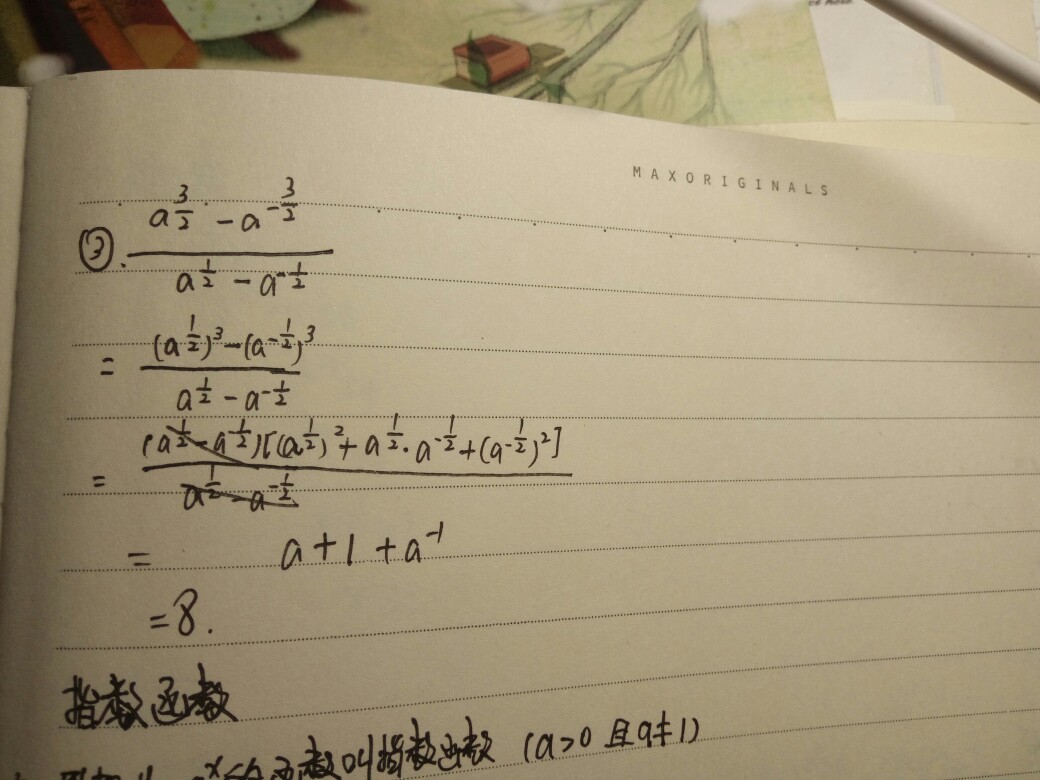 MAXORIGINALS
③. \frac{a^{\frac{3}{2}} - a^{-\frac{3}{2}}}{a^{\frac{1}{2}} - a^{-\frac{1}{2}}}
= \frac{(a^{\frac{1}{2}})^3 - (a^{-\frac{1}{2}})^3}{a^{\frac{1}{2}} - a^{-\frac{1}{2}}}
= \frac{(a^{\frac{1}{2}} - a^{-\frac{1}{2}})[(a^{\frac{1}{2}})^2 + a^{\frac{1}{2}} \cdot a^{-\frac{1}{2}} + (a^{-\frac{1}{2}})^2]}{a^{\frac{1}{2}} - a^{-\frac{1}{2}}}
= a + 1 + a^{-1}
= 8.
指数函数
函数叫指数函数 (a>0 且 a≠1)